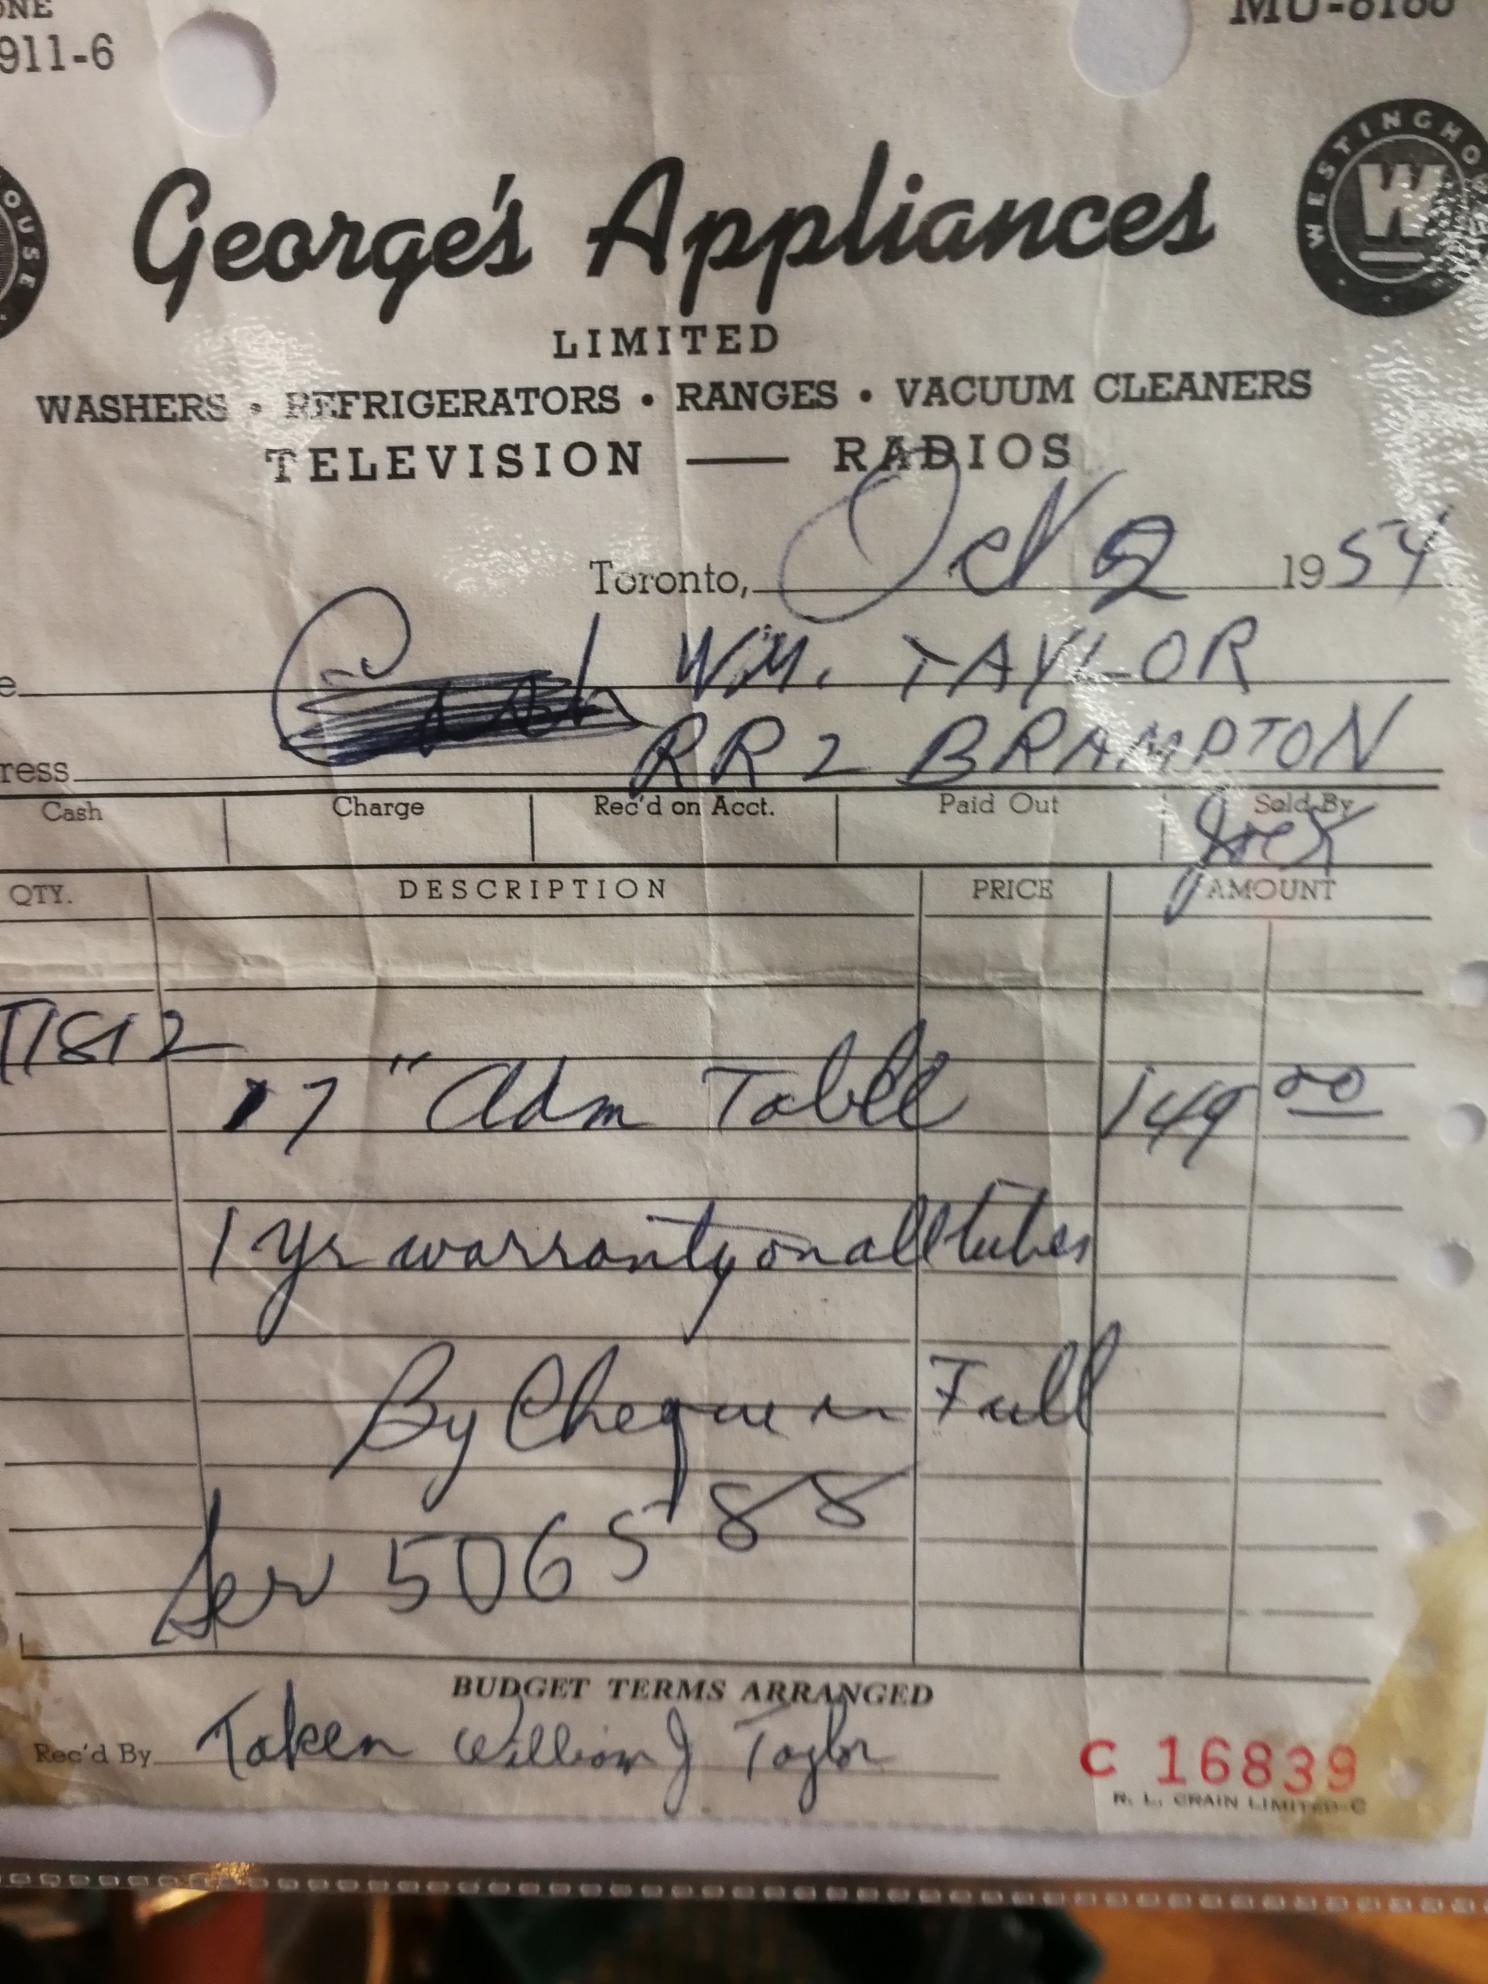 911-6
WESTINGHO
OUSE
George's Appliances
LIMITED
WASHERS • REFRIGERATORS • RANGES • VACUUM CLEANERS
TELEVISION — RADIOS
Toronto, Oct 2 1954
WM. TAYLOR
ress RR 2 BRAMPTON
Cash Charge Rec'd on Acct. Paid Out Sold By
QTY. DESCRIPTION PRICE AMOUNT
T1812
17" Adm Table 149 00
1 yr warranty on all tubes
By Cheque in Full
Ser 506588
BUDGET TERMS ARRANGED
Rec'd By Taken William J Taylor
C 16839
R. L. CRAIN LIMITED-C